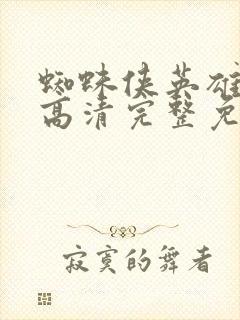 蜘蛛侠英雄
高清完整免
寂寞的舞者